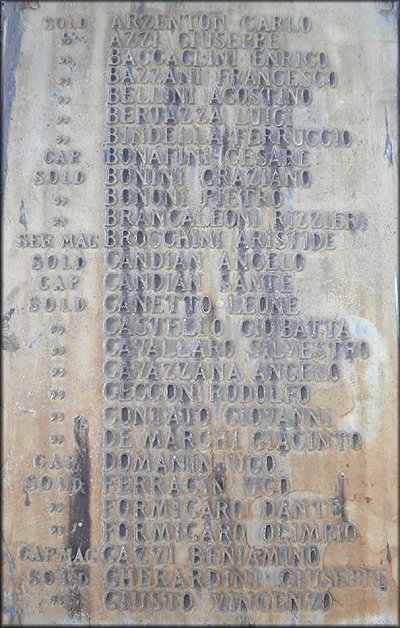 SOLD ARZENTON CARLO
" AZZI GIUSEPPE
" BACCAGLINI ENRICO
" BAZZANI FRANCESCO
" BELLINI AGOSTINO
" BERTAZZA LUIGI
" BINDELLA FERRUCCIO
CAP BONAFINI CESARE
SOLD BONINI GRAZIANO
" BONONI PIETRO
" BRANCALEONI RIZZIERI
SER MAG BROCCHINI ARISTIDE
SOLD CANDIAN ANGELO
CAP CANDIAN SANTE
SOLD CANETTO LEONE
" CASTELLO GIOBATTA
" CAVALLARO SILVESTRO
" CAVAZZANA ANGELO
" CECCONI RODOLFO
" CONTATO GIOVANNI
" DE MARCHI GIACINTO
CAP DOMANIN UGO
SOLD FERRACIN UGO
" FORMIGARO DANTE
" FORMIGARO OLIMPIO
CAP MAG GAZZI BENIAMINO
SOLD GHERARDINI GIUSEPPE
" GIUSTO VINCENZO